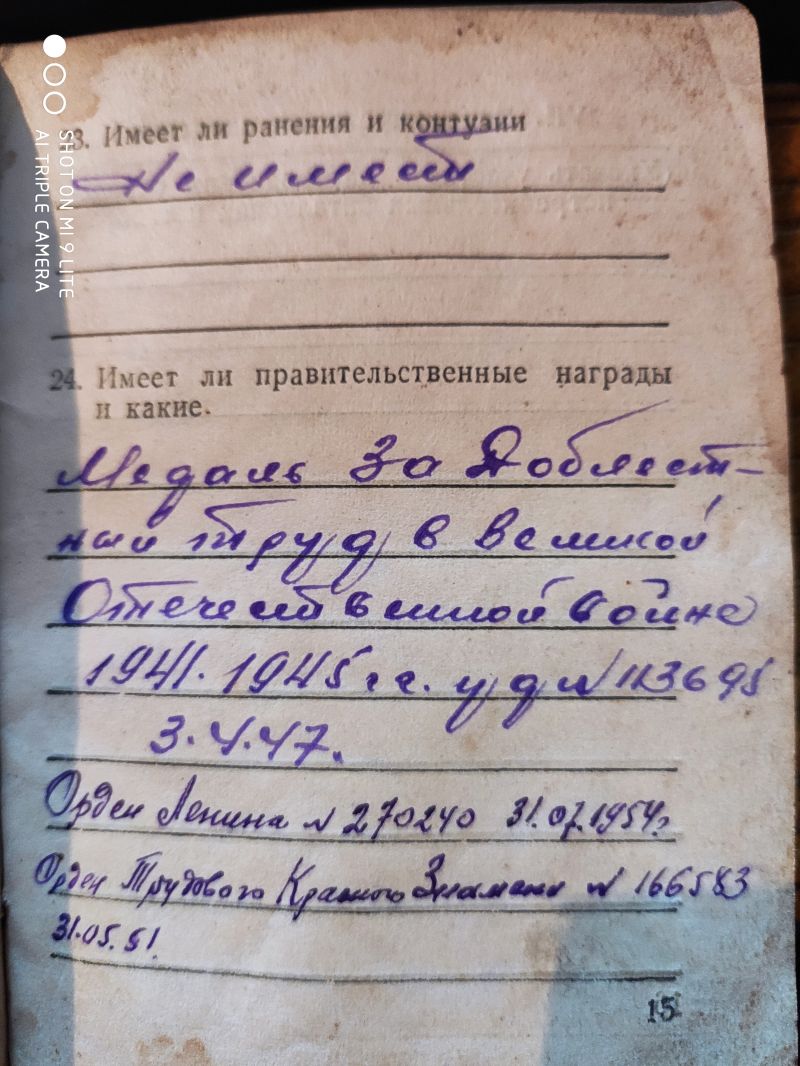 SHOT ON MI 9 LITE
AI TRIPLE CAMERA
23. Имеет ли ранения и контузии
Не имеет
24. Имеет ли правительственные награды
и какие.
Медаль За Доблест-
ный труд в Великой
Отечественной войне
1941. 1945 г.г. уд N 113695
3.4.47.
Орден Ленина N 270240 31.07.1954г.
Орден Трудового Красного Знамени N 166583
31.05.51.
15